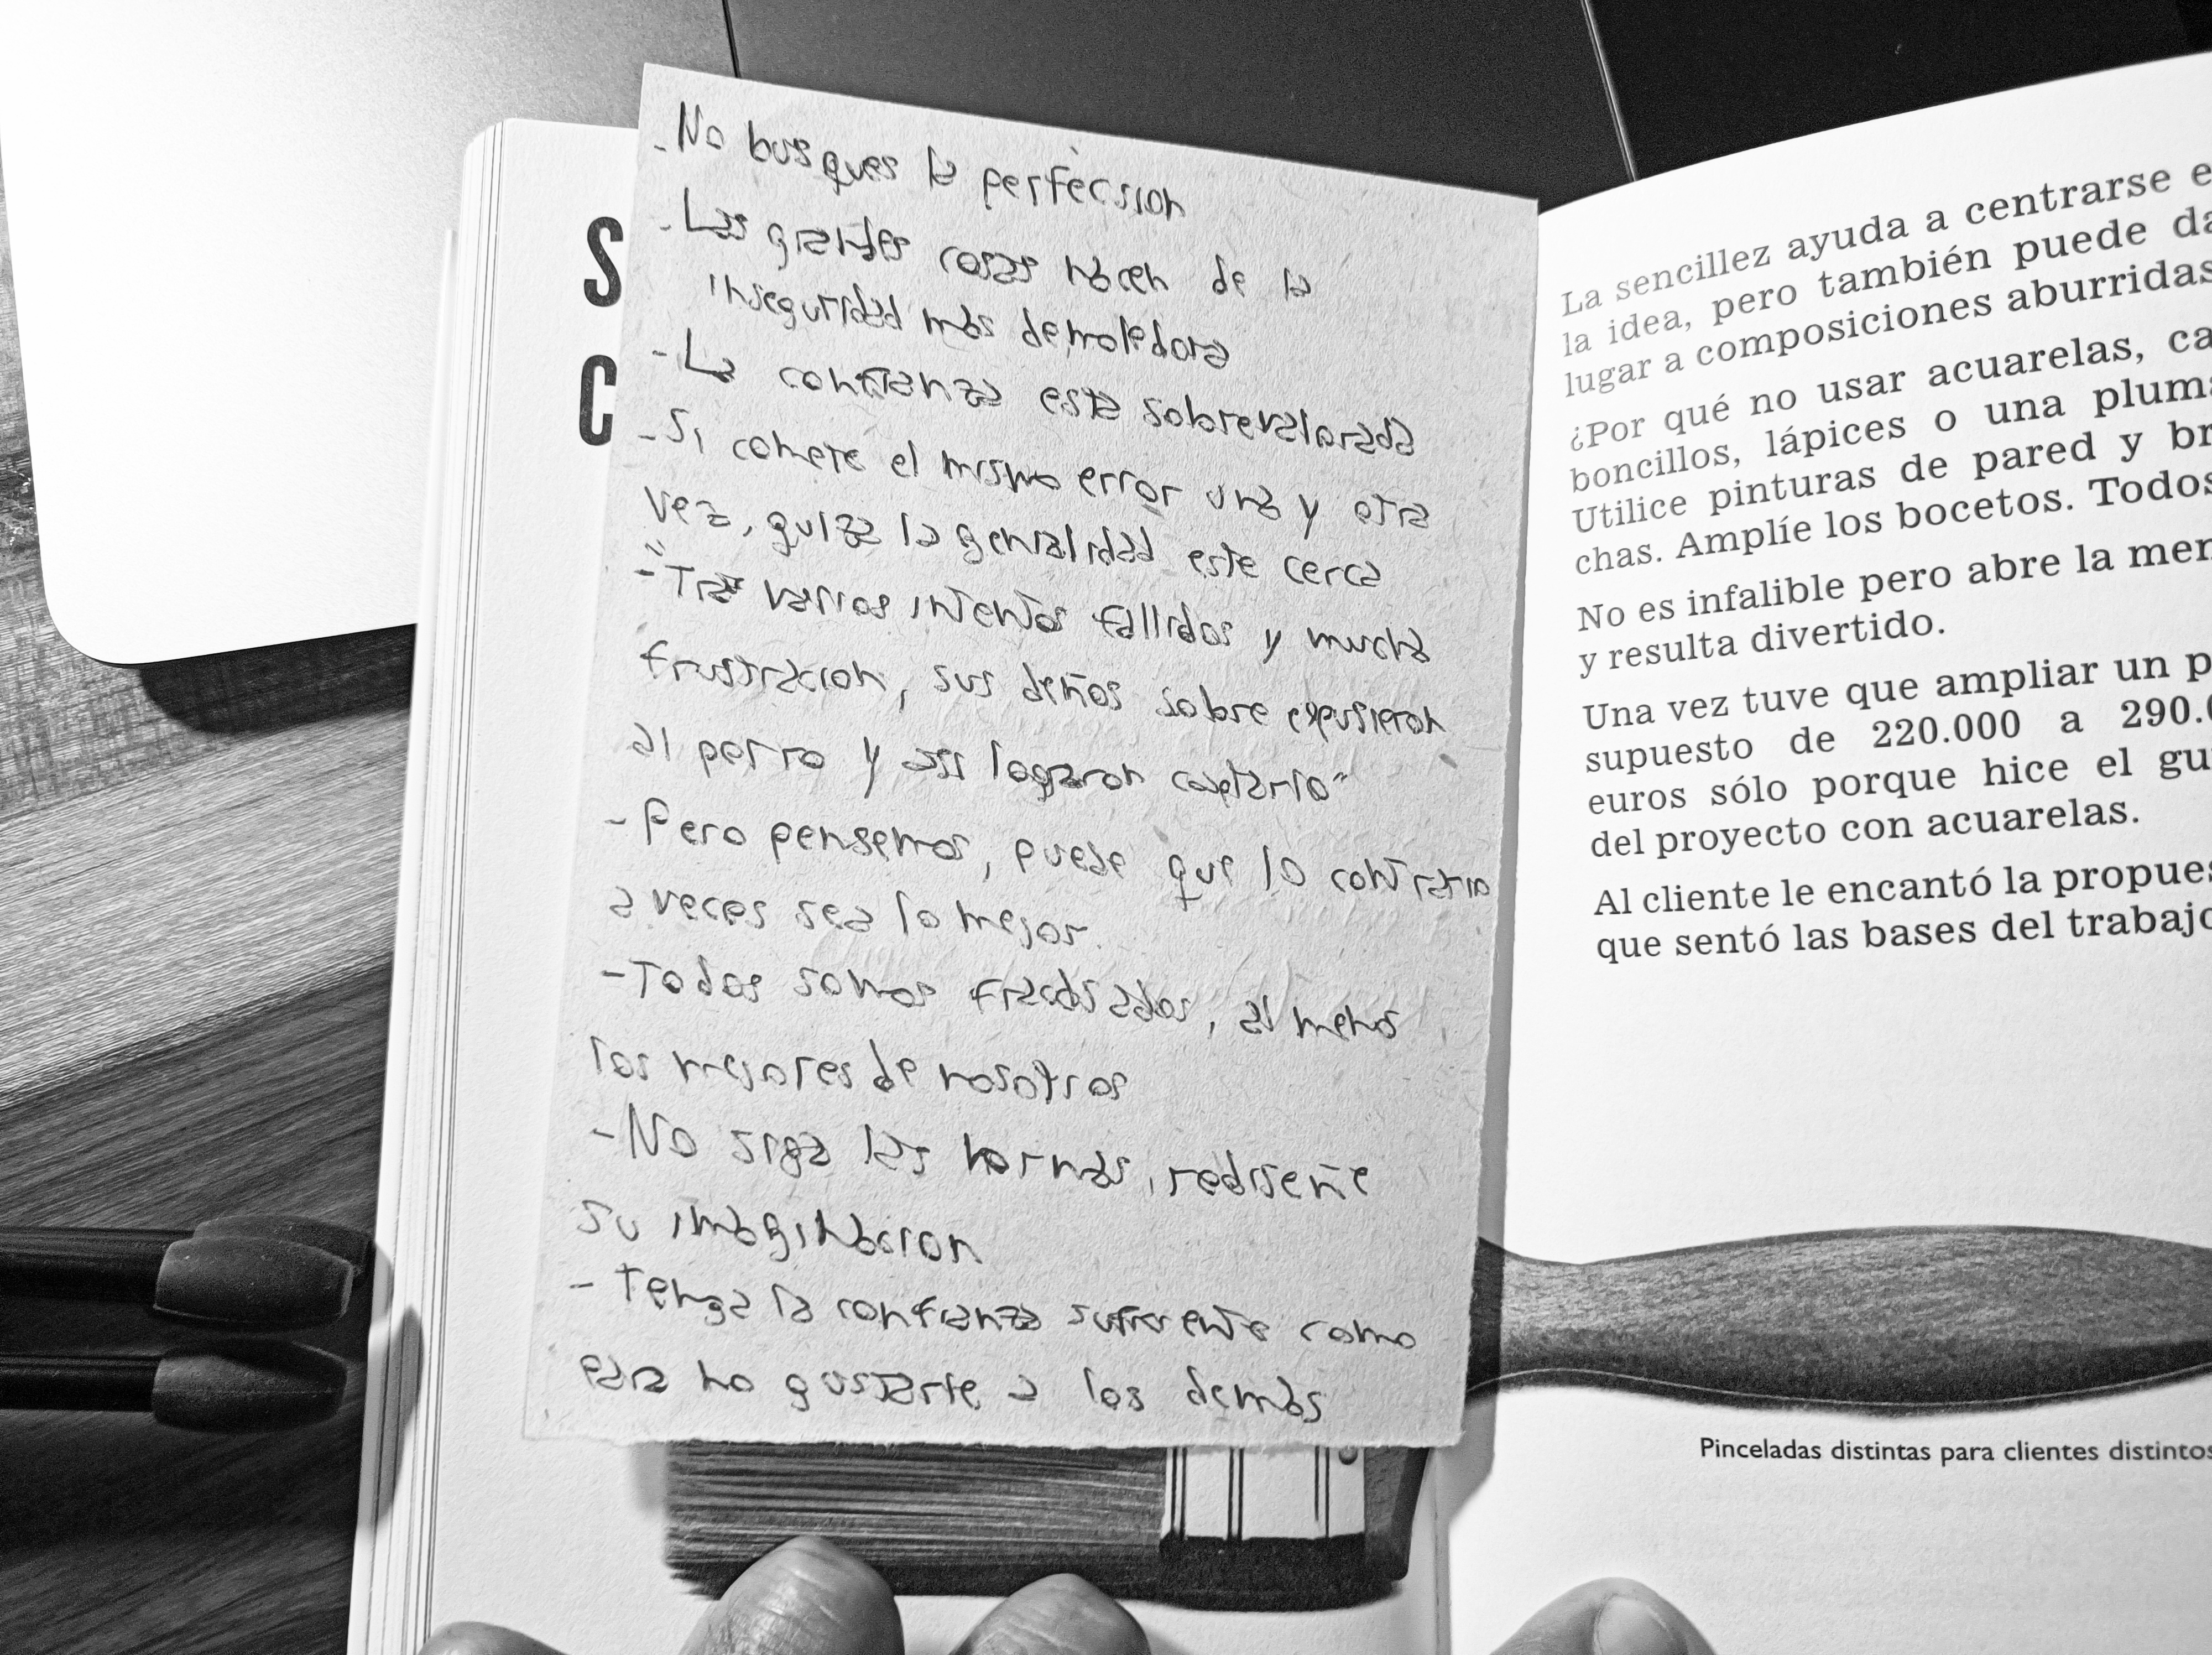 - No busques la perfecsion
- Las grandes cosas nacen de la
inseguridad más demoledora
- La confianza esta sobrevalorada
- Si comete el mismo error una y otra
vez, quiza la genialidad este cerca
- "Tras varios intentos fallidos y mucha
frustracion, sus deños sobre expusieron
al perro y asi lograron captarlo"
- Pero pensemos, puede que lo contrario
a veces sea lo mejor.
- Todos somos fracasados, al menos
los mejores de nosotros
- No siga las normas, rediseñe
su imaginacion
- Tenga la confianza suficiente como
para no gustarle a los demás
S
C
La sencillez ayuda a centrarse e
la idea, pero también puede da
lugar a composiciones aburridas
¿Por qué no usar acuarelas, ca
boncillos, lápices o una pluma
Utilice pinturas de pared y br
chas. Amplíe los bocetos. Todos
No es infalible pero abre la men
y resulta divertido.
Una vez tuve que ampliar un p
supuesto de 220.000 a 290.0
euros sólo porque hice el gu
del proyecto con acuarelas.
Al cliente le encantó la propues
que sentó las bases del trabajo
Pinceladas distintas para clientes distintos